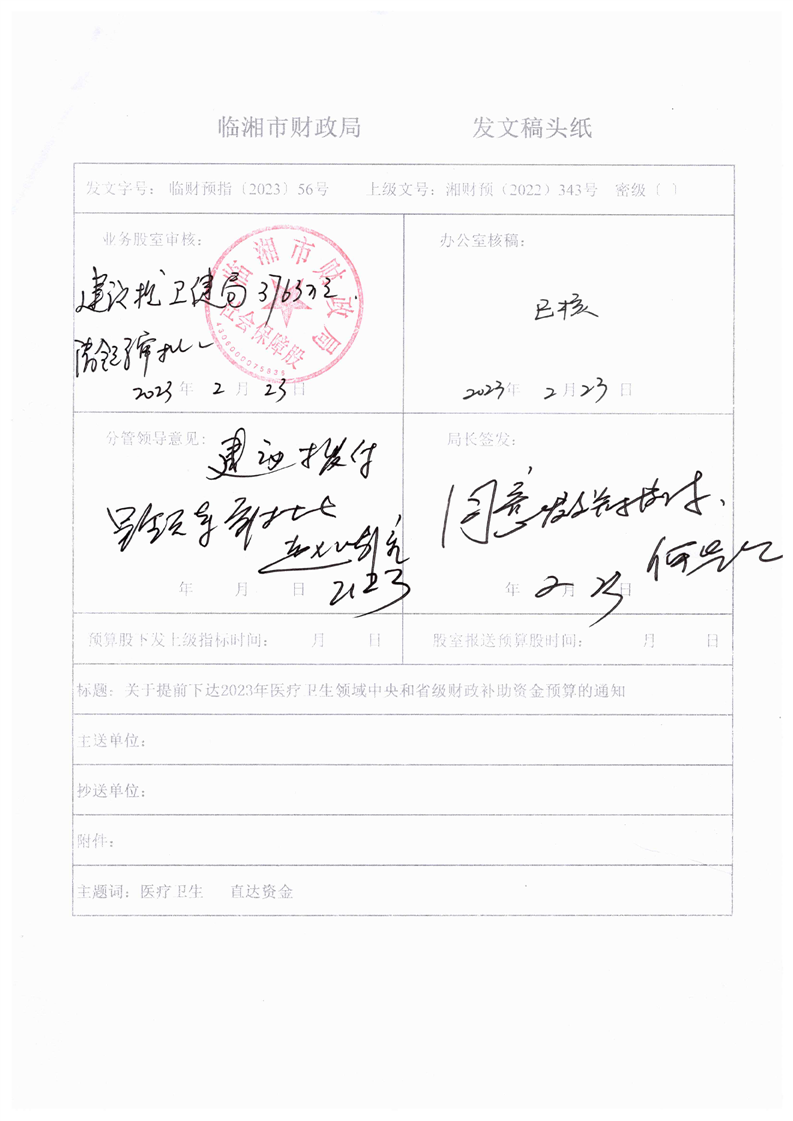 临湘市财政局 发文稿头纸
发文字号：临财预指〔2023〕56号 上级文号：湘财预（2022）343号 密级〔 〕
业务股室审核：
建议拨卫健局376.3万元.
临湘市财政局
社会保障股
2023年 2月 23日
办公室核稿：
已核
2023年 2月23日
分管领导意见：
建议拨付
年 月 日
2.23
局长签发：
同意
年 2月 23
预算股下发上级指标时间： 月 日
股室报送预算股时间： 月 日
标题：关于提前下达2023年医疗卫生领域中央和省级财政补助资金预算的通知
主送单位：
抄送单位：
附件：
主题词：医疗卫生 直达资金